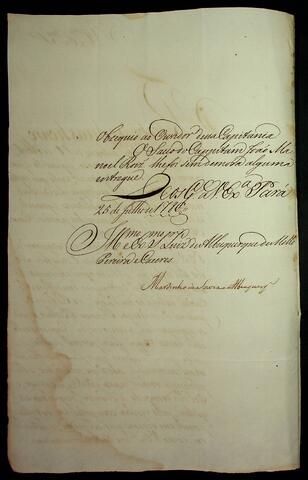 Obsequio ao Ouvidor dessa Capitania
O Sacco do Cappitam João Ma
noel Roiz thefoi sem demora alguma
entregue.
Deos G.e a V. Ex.a Pará
25 de Julho de 1776
Ill.mo e Ex.mo S.r Luiz de Albuquerque de Mello
Pereira e Caceres
Martinho de Souza e Albuquerq.e